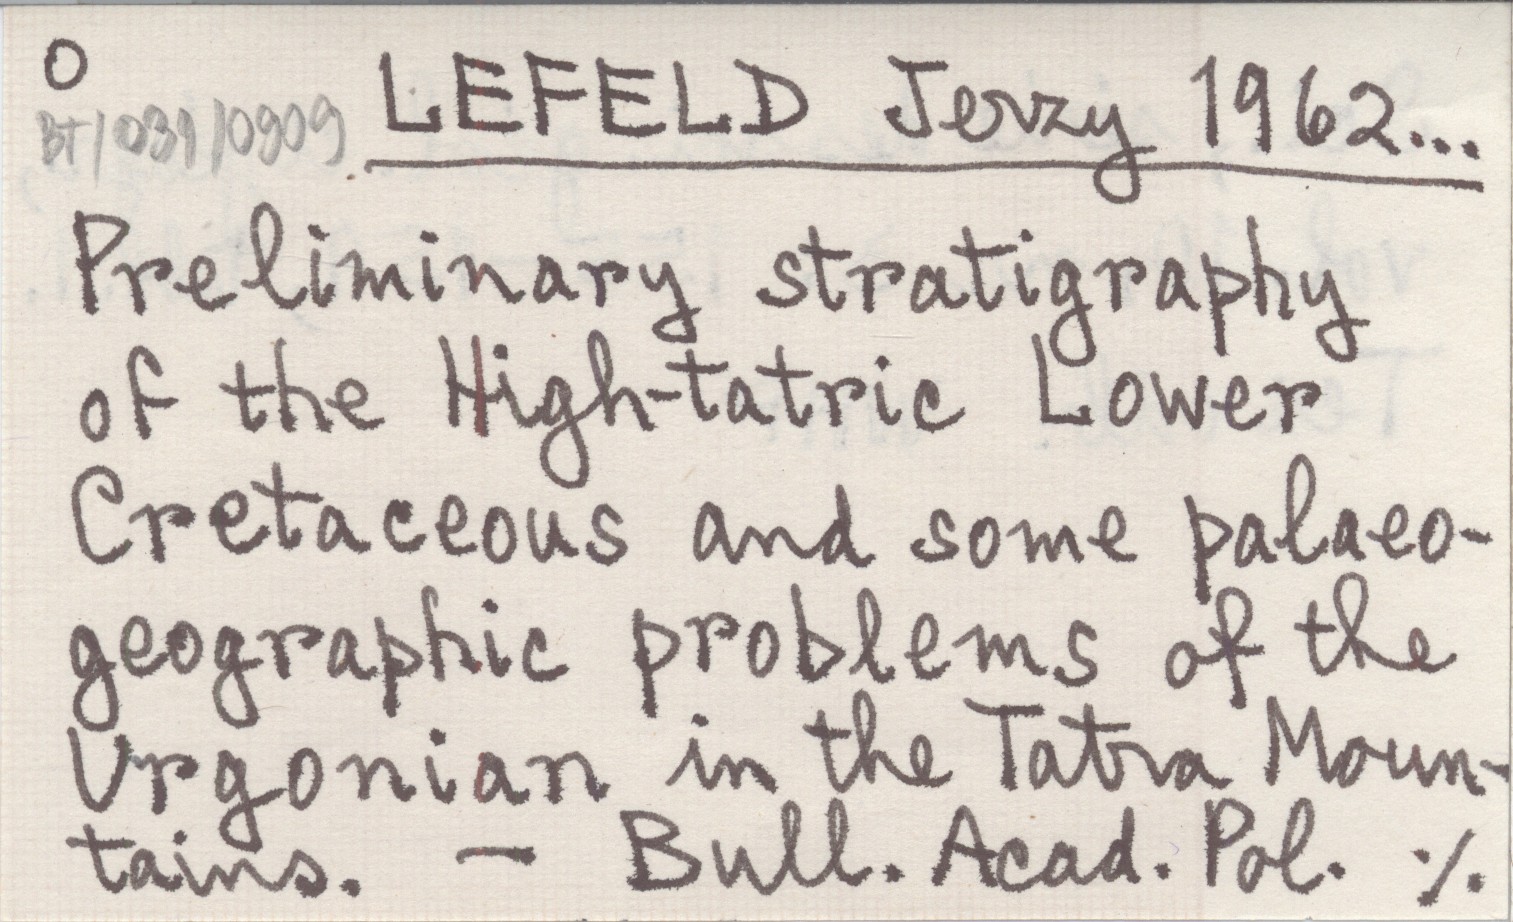 O
BT/031/0909 LEFELD Jerzy 1962...
Preliminary stratigraphy
of the High-tatric Lower
Cretaceous and some palaeo-
geographic problems of the
Urgonian in the Tatra Moun-
tains. — Bull. Acad. Pol. ./.